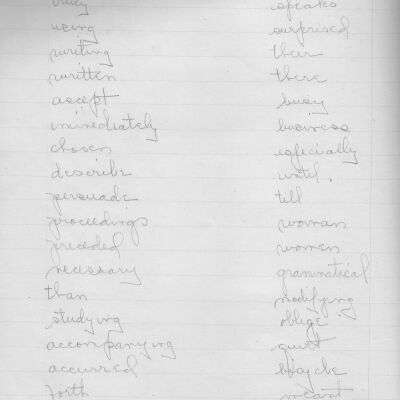 using
writing
written
accept
immediately
chosen
describe
persuade
proceedings
preceded
necessary
than
studying
accompanying
occurred
forth
speaks
surprised
their
there
busy
business
especially
until.
till
woman
women
grammatical
modifying
oblige
quiet
bicycle
meant